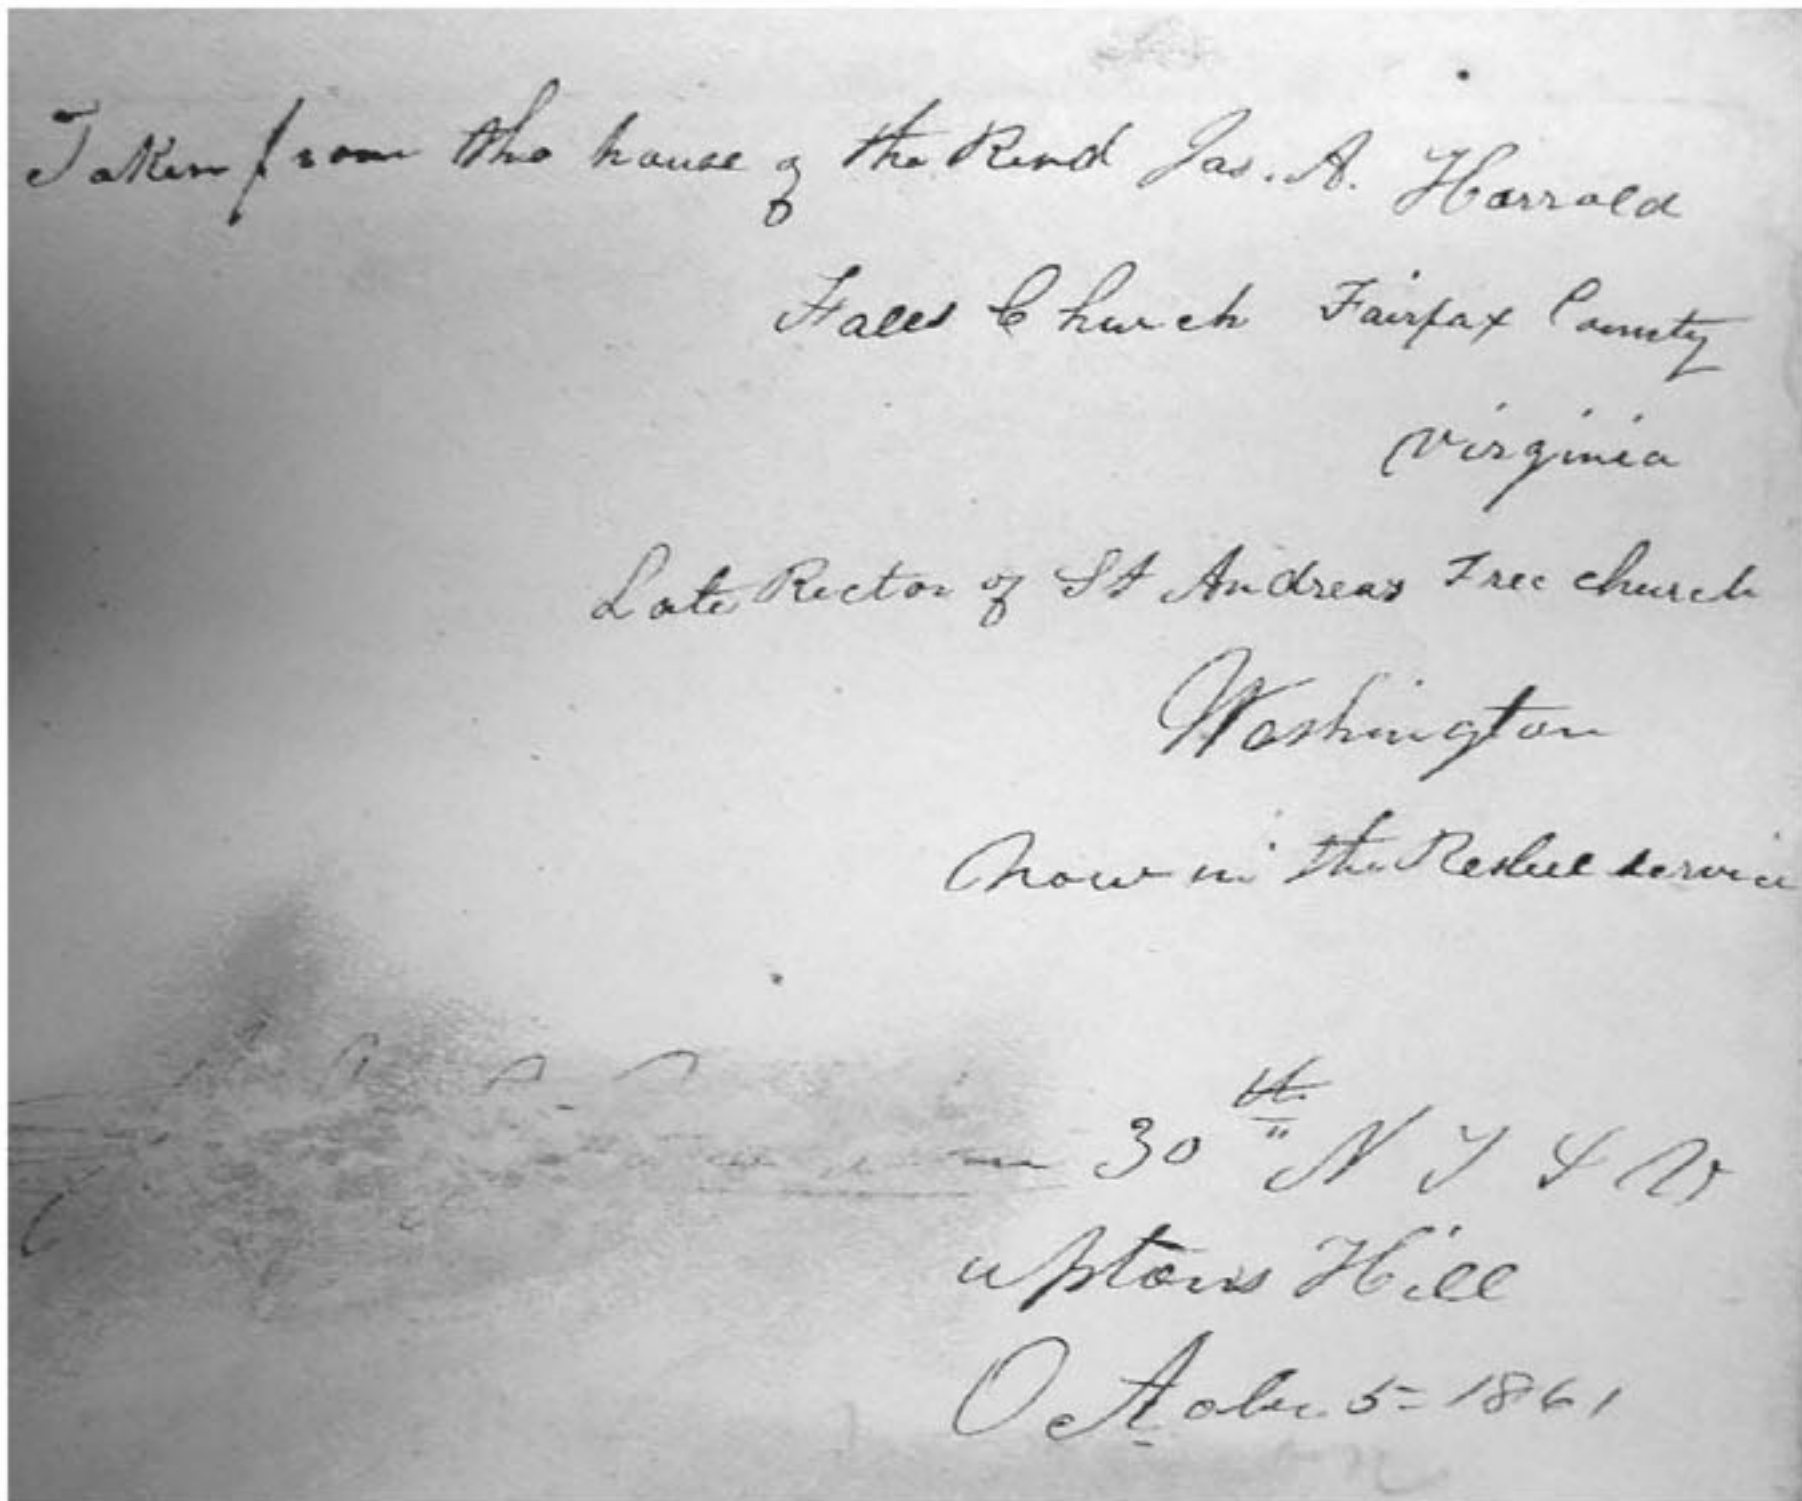 Taken from the house of the Revd Jas. A. Harrold
Falls Church Fairfax County
Virginia
Late Rector of St Andrews Free church
Washington
now in the Rebel service
30th N Y S V
uptons Hill
October 5 - 1861